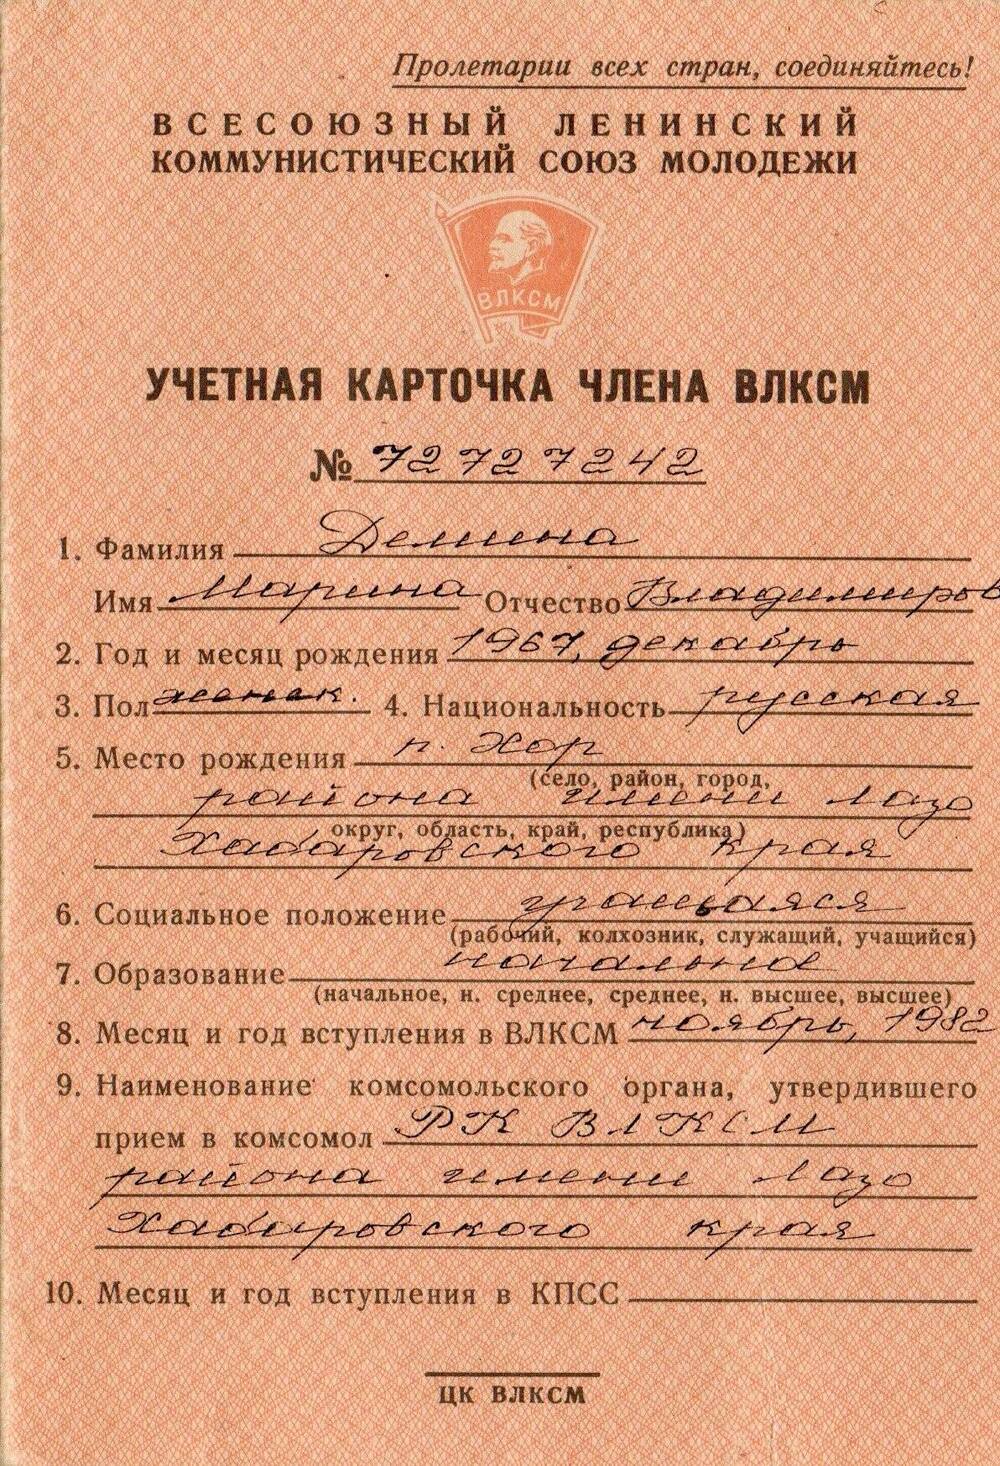 Пролетарии всех стран, соединяйтесь!
ВСЕСОЮЗНЫЙ ЛЕНИНСКИЙ
КОММУНИСТИЧЕСКИЙ СОЮЗ МОЛОДЕЖИ
ВЛКСМ
УЧЕТНАЯ КАРТОЧКА ЧЛЕНА ВЛКСМ
№ 72727242
1. Фамилия Демина
Имя Марина Отчество Владимиров
2. Год и месяц рождения 1967, декабрь
3. Пол женск. 4. Национальность русская
5. Место рождения п. Хор
(село, район, город,
района имени Лазо
округ, область, край, республика)
Хабаровского края
6. Социальное положение учащаяся
(рабочий, колхозник, служащий, учащийся)
7. Образование
(начальное, н. среднее, среднее, н. высшее, высшее)
8. Месяц и год вступления в ВЛКСМ ноябрь, 1982
9. Наименование комсомольского органа, утвердившего
прием в комсомол РК ВЛКСМ
района имени Лазо
Хабаровского края
10. Месяц и год вступления в КПСС
ЦК ВЛКСМ